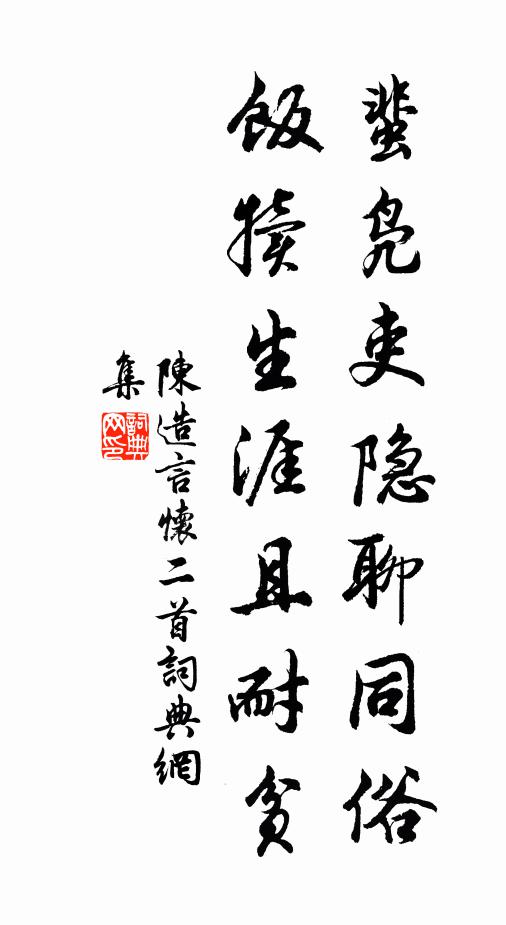 蜚凫吏隐聊同俗
飯犢生涯且耐貧
陳造言懷二首詞典網
集
詞典
网印